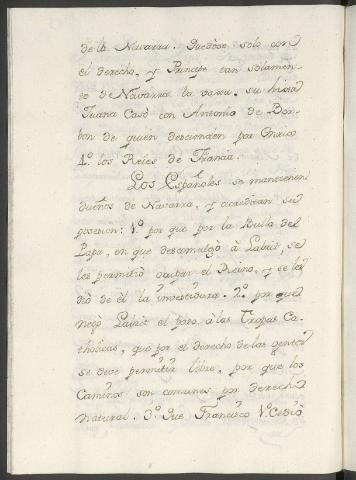 de la Navarra. Quedose solo con
el derecho, y Principe tan solamen-
te de Navarra la vaxa. su hixa
Juana Casò con Antonio de Bor-
bon de quien descienden por Enrico
4.º los Reies de Francia.
Los Españoles se mantienen
dueños de Navarra, y acreditan su
posesion: 1.º por que por la Bulla del
Papa, en que descomulgò à Labrit, se
les permitiò ocupar el Reino, y se les
diò de èl la investidura. 2.º por que
negò Labrit el paso à las Tropas Ca-
tholicas, que por el derecho de las gentes
se deve permitir libre, por que los
Caminos son comunes por derecho
natural. 3.º Que Francisco 1.º Cediò